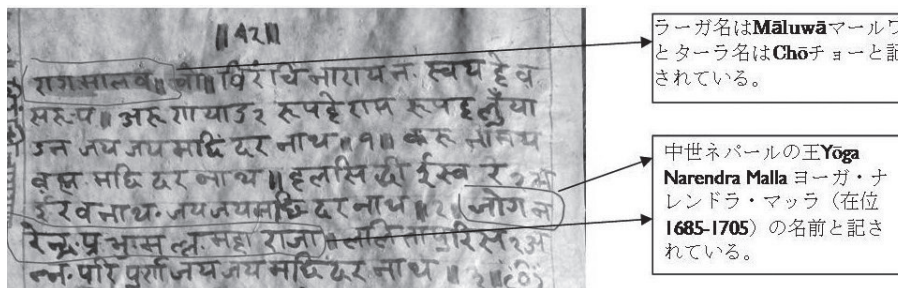 ॥ ४२ ॥
रागमालव ॥ चो ॥ विरंचि नारायन . स्वय
सरूप ॥ अरू रूपहे राम
जय जय मछिंदर नाथ ॥ १ ॥ करू नामय
मछिंदर नाथ ॥ ईस्व रे
नाथ . जय जय मछिंदर नाथ ॥ २ ॥ जोग न
रेन्द्र . महाराजा
परि पुर्ण जय जय मछिंदर नाथ ॥ ३ ॥
ラーガ名はMāluwāマールワ
とターラ名はChōチョーと記
されている。
中世ネパールの王Yōga
Narendra Malla ヨーガ・ナ
レンドラ・マッラ（在位
1685-1705）の名前と記さ
れている。